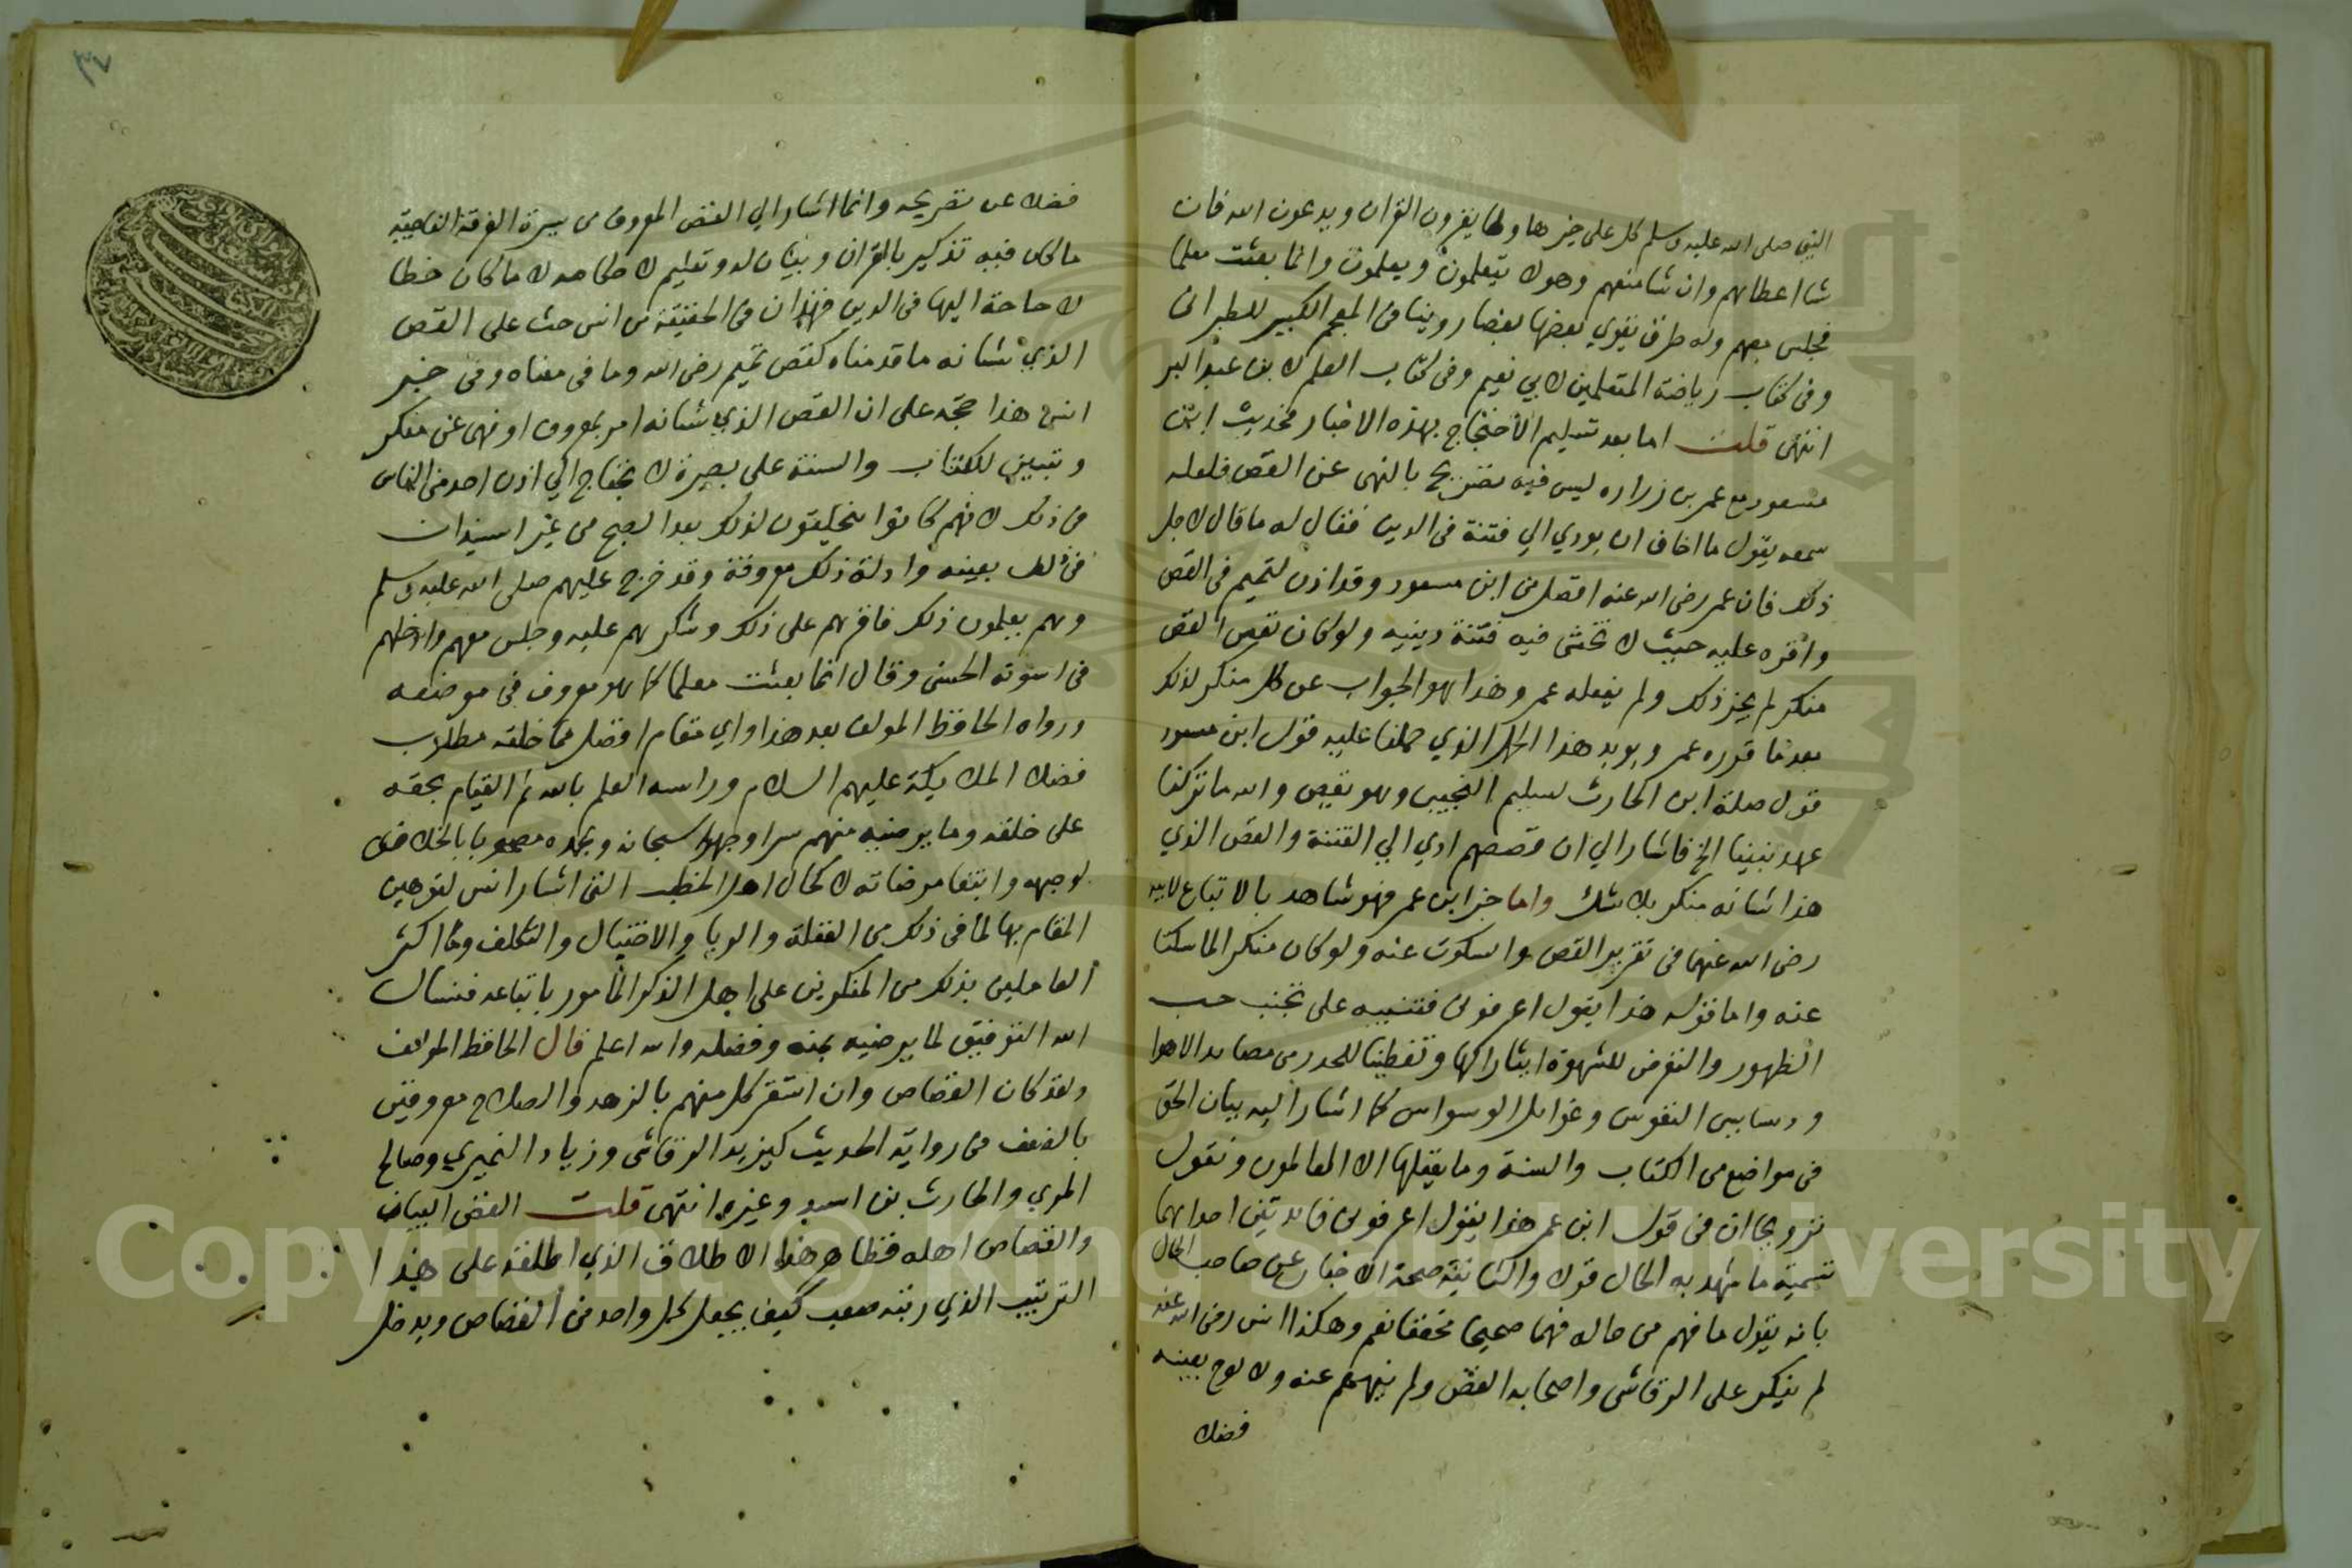 النبي صلى الله عليه وسلم كل على خير هاولا يقرون القران ويدعون الله فان
شا اعطاهم وان شا منعهم وهولا يتعلمون ويعلمون وانما بعثت معلما
فجلس معهم وله طرق يقوي بعضها بعضا روينا في المعجم الكبير للطبراني
وفي كتاب رياضة المتعلمين لابي نعيم وفي كتاب العلم لابن عبد البر
انتهى قلت اما بعد تسليم الاحتجاج بهذه الاخبار فحديث ابن
مسعود مع عمر بن زراره ليس فيه تصريح بالنهى عن القص فلعله
سمعه يقول ما اخاف ان يودي الي فتنة في الدين فقال له ما قال لاجل
ذلك فان عمر رضي الله عنه افضل من ابن مسعود وقد اذن لتميم في القص
واقره عليه حيث لا تخشى فيه فتنة دينيه ولو كان نفس القص
منكر لم يجز ذلك ولم يفعله عمر وهذا هو الجواب عن كل منكر لذلك
بعد ما قرره عمر ويويد هذا الحمل الذي حملنا عليه قول ابن مسعود
قول صلة ابن الحارث لسليم التجيبي وهو يقص والله ما تركنا
عهد نبينا الخ فاشار الي ان قصصهم ادي الي الفتنة والقص الذي
هذا شانه منكر بلا شك واما خبر ابن عمر فهو شاهد بالاتباع لابيه
رضي الله عنهما في تقرير القص والسكوت عنه ولو كان منكر الما سكتا
عنه واما قوله هذا يقول اعرفوني فتنبيه على تجنب حب
الظهور والتعرض للشهوة ايثارا لها وتفطينا للحذر من مصايد الاهوا
ودسايس النفوس وغوايل الوسواس كما اشار اليه بيان الحق
في مواضع من الكتاب والسنة وما يعقلها الا العالمون ونقول
تزويجا ان في قول ابن عمر هذا يقول اعرفوني فايدتين احداهما
تسمية ما شهد به الحال قولا والثانية صحة الاخبار عن صاحب الحال
بانه يقول ما فهم من حاله فهما صحيحا محققا نعم وهكذا انس رضي الله عنه
لم ينكر على الرقاشي واصحابه القص ولم ينههم عنه ولا لوح بعينه
فضلا
٣٤
فضلا عن تصريحه وانما اشار الي القص المعروف من سيرة الفرقة الناجية
ما كان فيه تذكير بالقران وبيان له وتعليم لا ما كان خطا
لا حاجة اليها في الدين فهذان في الحقيقة من انس حث على القص
الذي شانه ما قدمناه كقص تميم رضي الله وما في معناه وفي خبر
انس هذا حجة على ان القص الذي شانه امر بمعروف او نهى عن منكر
وتبيين للكتاب والسنة على بصيرة لا يحتاج الي اذن احد من الناس
في ذلك لانهم كانوا يتحلقون لذلك بعد الصبح من غير استيذان
في ذلك بعينه وادلة ذلك معروفة وقد خرج عليهم صلى الله عليه وسلم
وهم يعلمون ذلك فاقرهم على ذلك وشكرهم عليه وجلس معهم وادخلهم
في اسوته الحسنى وقال انما بعثت معلما كما هو معروف في موضعه
ورواه الحافظ المولف بعد هذا واي مقام افضل مما خلقه مطلوب
فضلا الملايكة عليهم السلام وراسه العلم بالله ثم القيام بحقه
على خلقه وما يرضيه منهم سرا وجهرا سبحانه وبحمده مصحوبا بالاخلاص
لوجهه وابتغا مرضاته لا كحال اهل الخطب التي اشار انس لتوهين
المقام بها لما في ذلك من الغفلة والريا والاختيال والتكلف وما اكثر
العاملين بذلك من المنكرين على اهل الذكر المامور باتباعه فنسال
الله التوفيق لما يرضيه بمنه وفضله والله اعلم قال الحافظ المولف
ولقد كان القصاص وان اشتهر كل منهم بالزهد والصلاح معروفين
بالضعف في رواية الحديث كيزيد الرقاشي وزياد النميري وصالح
المري والحارث بن اسد وغيره انتهى قلت القص البيان
والقصاص اهله فظاهر هذا الاطلاق الذي اطلقه على هذا
الترتيب الذي رتبه صعب كيف يجعل كل واحد من القصاص ويدخل